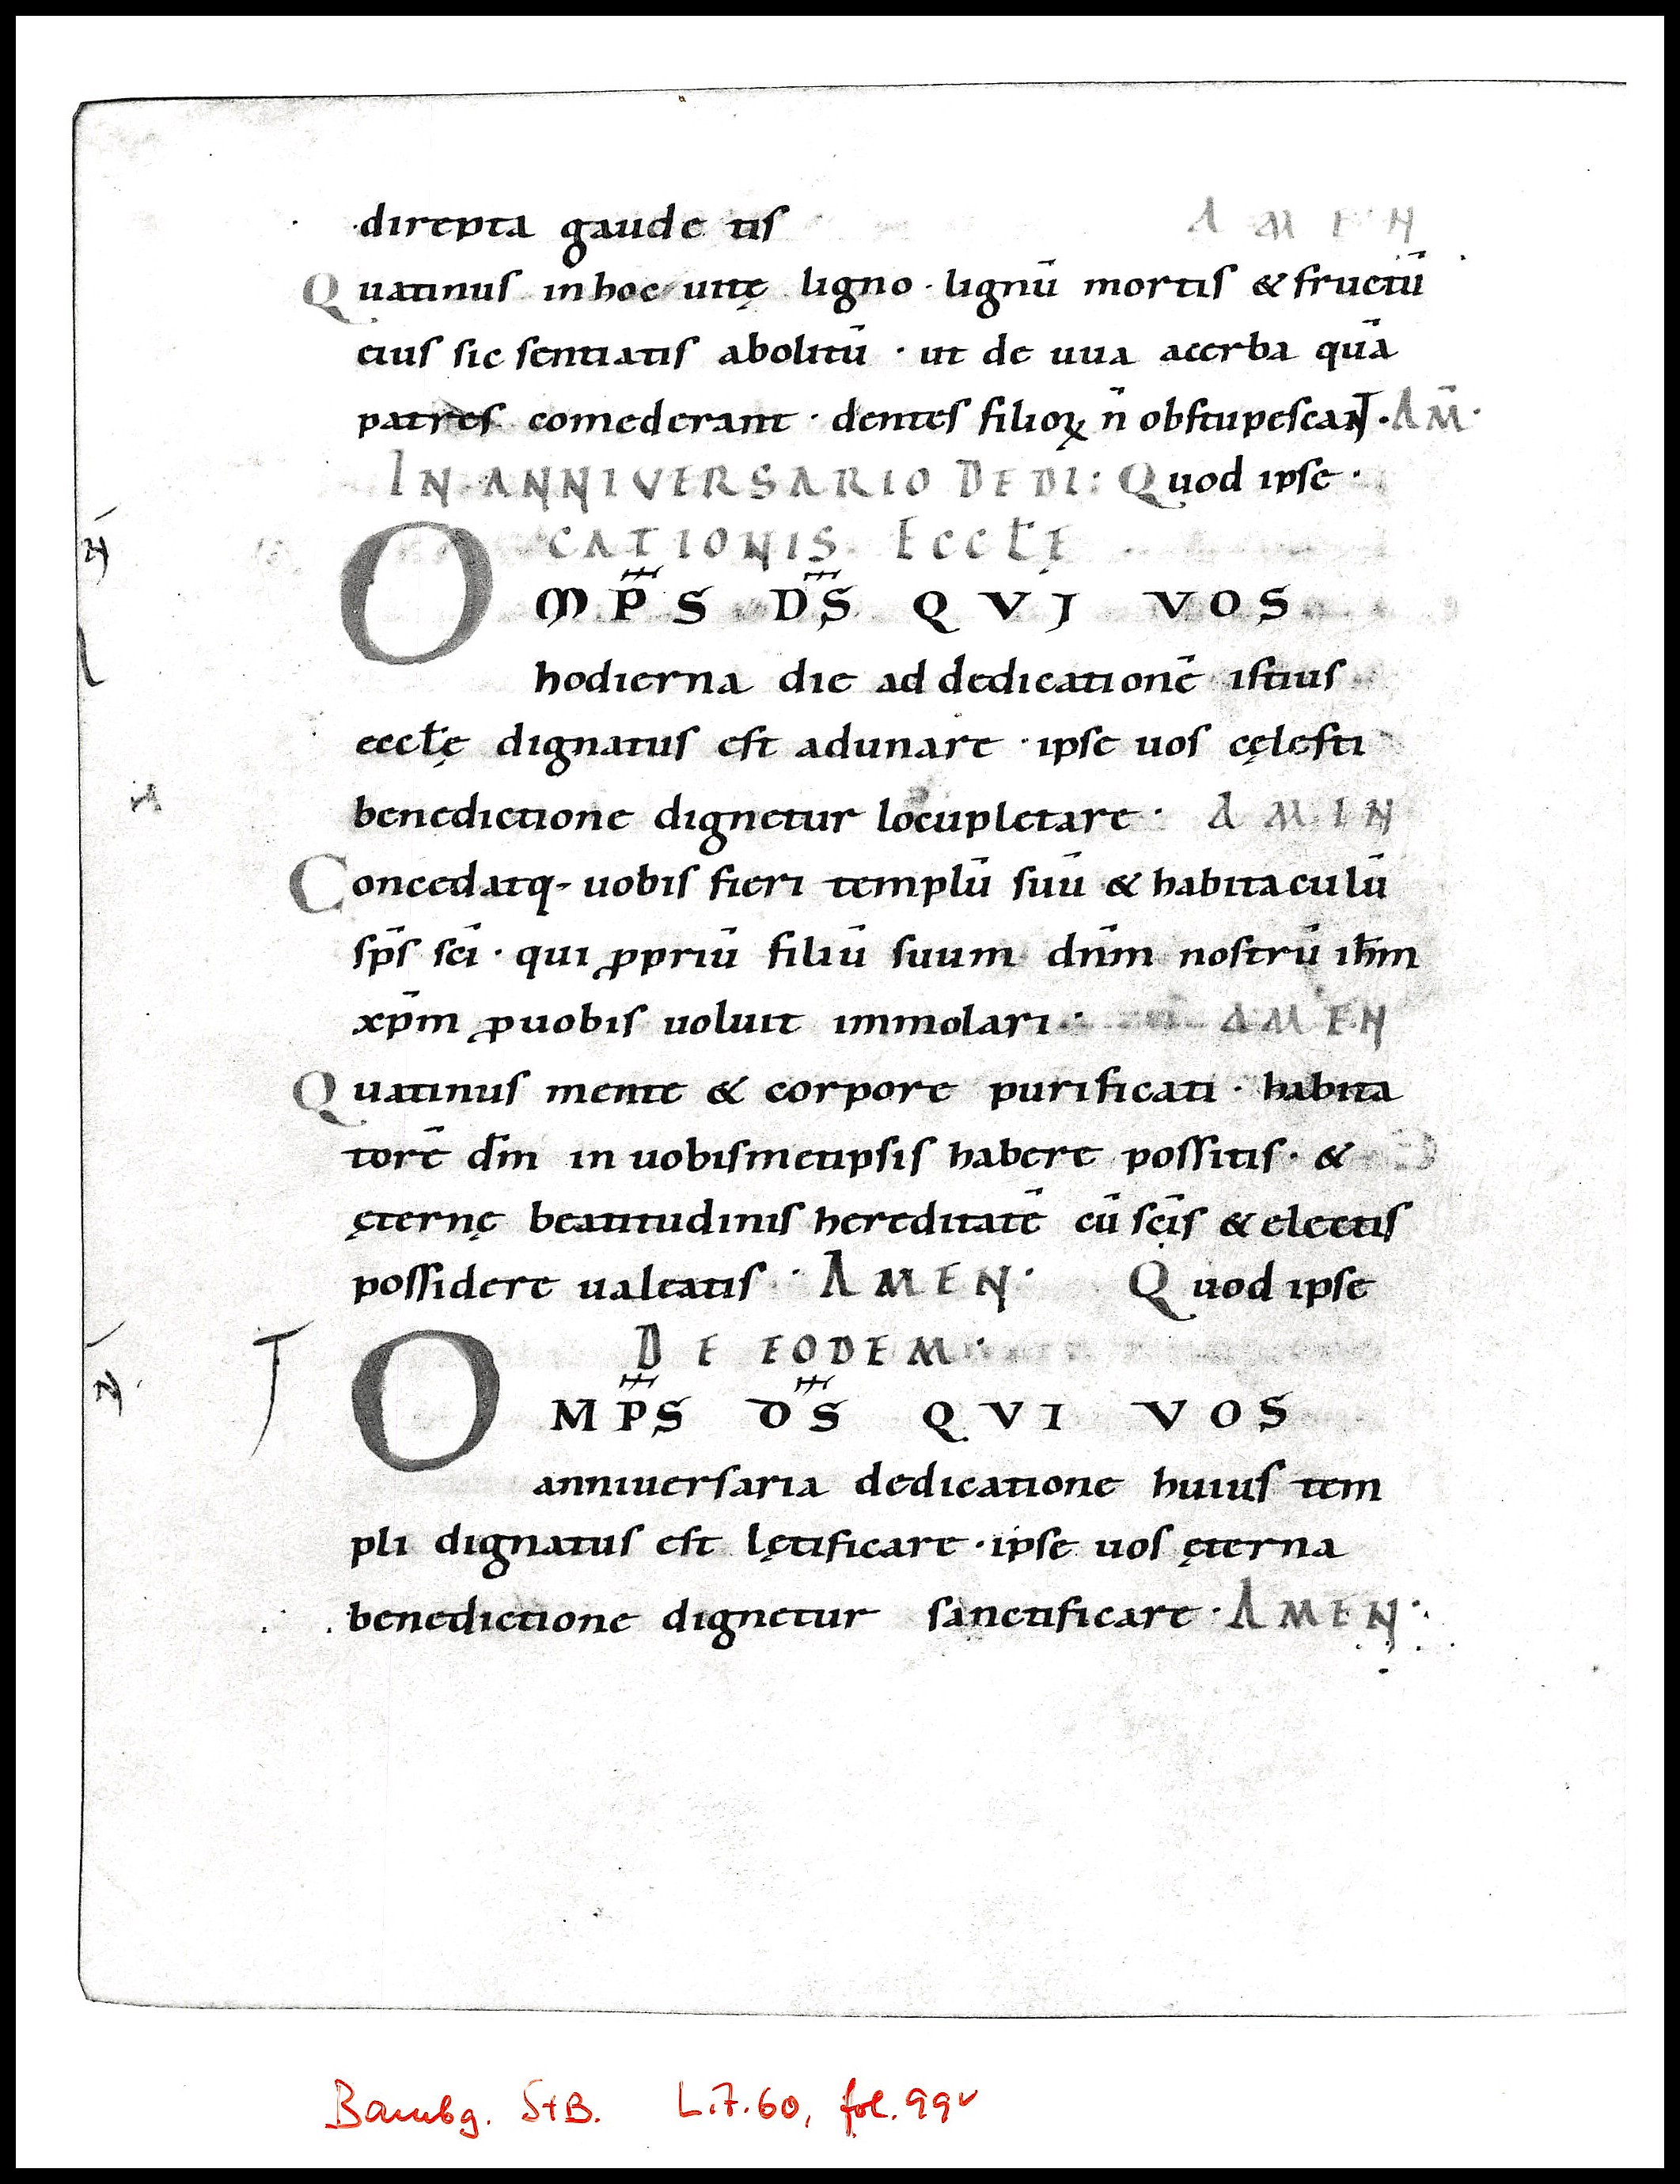 direpta gaudetis AMEN
Quatinus in hoc uitę ligno · lignū mortis & fructū
eius sic sentiatis abolitū · ut de uua acerba quā
patres comederant · dentes filioꝝ n̄ obstupescaNT · AM̄·
IN ANNIVERSARIO DEDI: Quod ipse ·
CATIONIS ECCŁĘ
OMP̄S D̄S QVI VOS
hodierna die ad dedicationē istius
eccłę dignatus est adunare · ipse uos cęlesti
benedictione dignetur locupletare · AMEN
Concedatq- uobis fieri templū suū & habitaculū
sp̄s sc̄i · qui ꝓpriū filiū suum dn̄m nostrū ih̄m
xp̄m ꝓ uobis uoluit immolari · AMEN
Quatinus mente & corpore purificati · habita
torē dm̄ in uobismetipsis habere possitis · &
ęternę beatitudinis hereditatē cū sc̄is & electis
possidere ualeatis · AMEN · Quod ipse
DE EODEM ·
OMP̄S D̄S QVI VOS
anniuersaria dedicatione huius tem
pli dignatus est lętificare · ipse uos ęterna
benedictione dignetur sanctificare · AMEN ·
Bambg. StB. L.7.60, fol. 99v